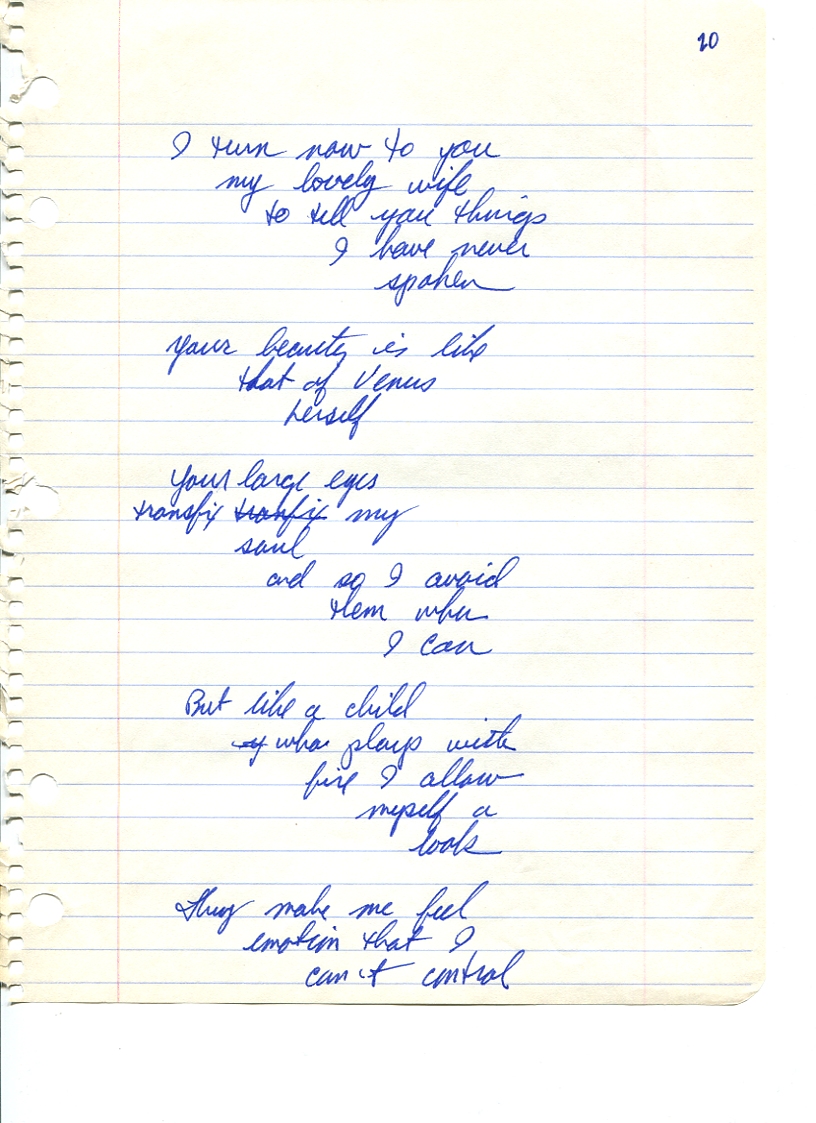 20
I turn now to you
my lovely wife
to tell you things
I have never
spoken
Your beauty is like
that of Venus
herself
Your large eyes
transfix tranfix my
soul
and so I avoid
them when
I can
But like a child
who plays with
fire I allow
myself a
look
They make me feel
emotion that I
can't control